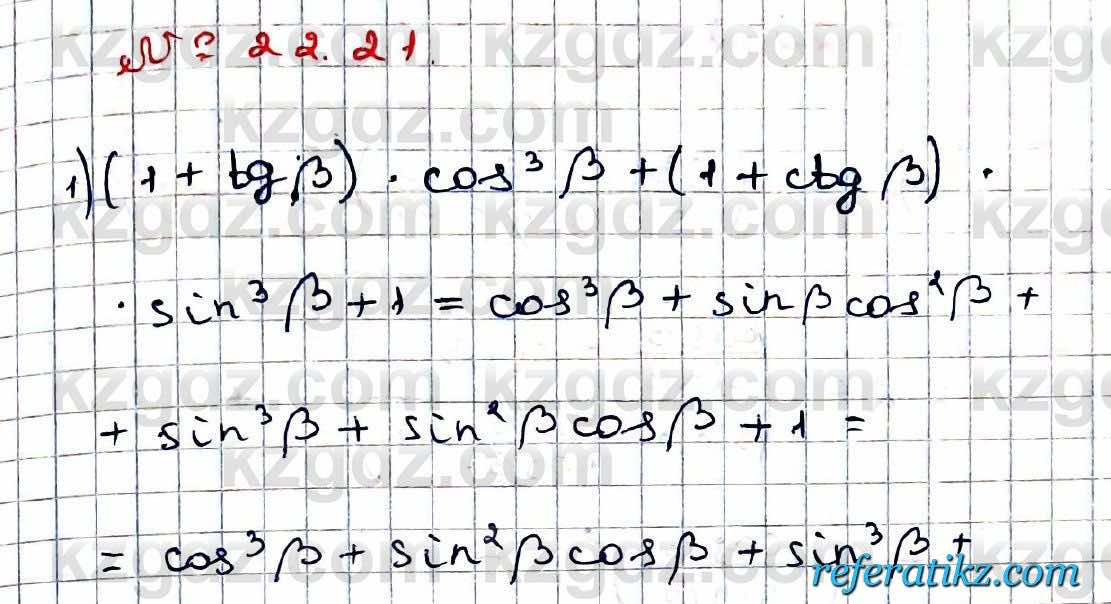 № 22.21.
1) (1 + tg β) · cos³ β + (1 + ctg β) ·
· sin³ β + 1 = cos³ β + sin β cos² β +
+ sin³ β + sin² β cos β + 1 =
= cos³ β + sin² β cos β + sin³ β +
referatikz.com
kzgdz.com